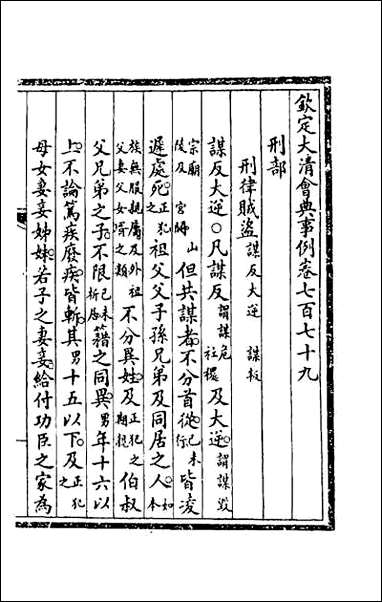 欽定大清會典事例卷七百七十九
刑部
刑律賊盜 謀反大逆 謀叛
謀反大逆○凡謀反謂謀危社稷及大逆謂謀毀
宗廟山陵及宮闕但共謀者不分首從已未行皆凌
遲處死正犯之祖父父子孫兄弟及同居之人如本
族無服親屬及外祖父妻父女壻之類不分異姓及正犯之期親伯叔
父兄弟之子不限已未析居籍之同異男年十六以
上不論篤疾廢疾皆斬其男十五以下及正犯之
母女妻妾姊妹若子之妻妾給付功臣之家為